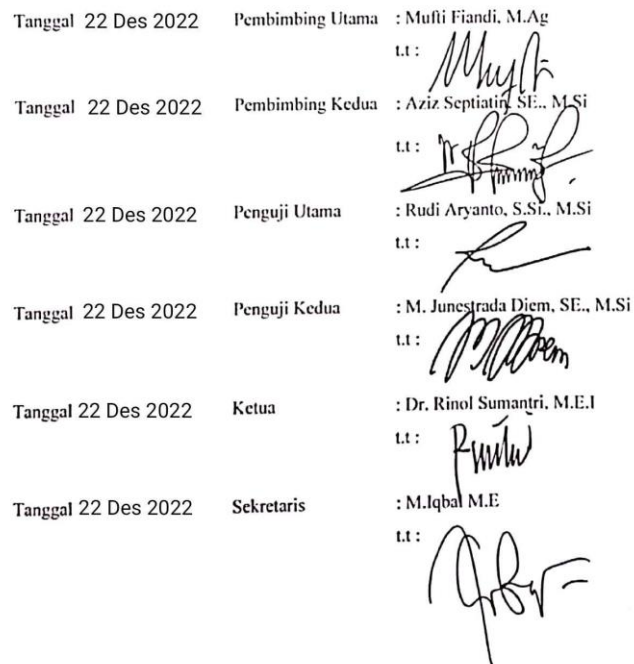 Tanggal 22 Des 2022 Pembimbing Utama : Mufti Fiandi, M.Ag
t.t :
Tanggal 22 Des 2022 Pembimbing Kedua : Aziz Septiatin, SE., M.Si
t.t :
Tanggal 22 Des 2022 Penguji Utama : Rudi Aryanto, S.Si., M.Si
t.t :
Tanggal 22 Des 2022 Penguji Kedua : M. Junestrada Diem, SE., M.Si
t.t :
Tanggal 22 Des 2022 Ketua : Dr. Rinol Sumantri, M.E.I
t.t :
Tanggal 22 Des 2022 Sekretaris : M.Iqbal M.E
t.t :